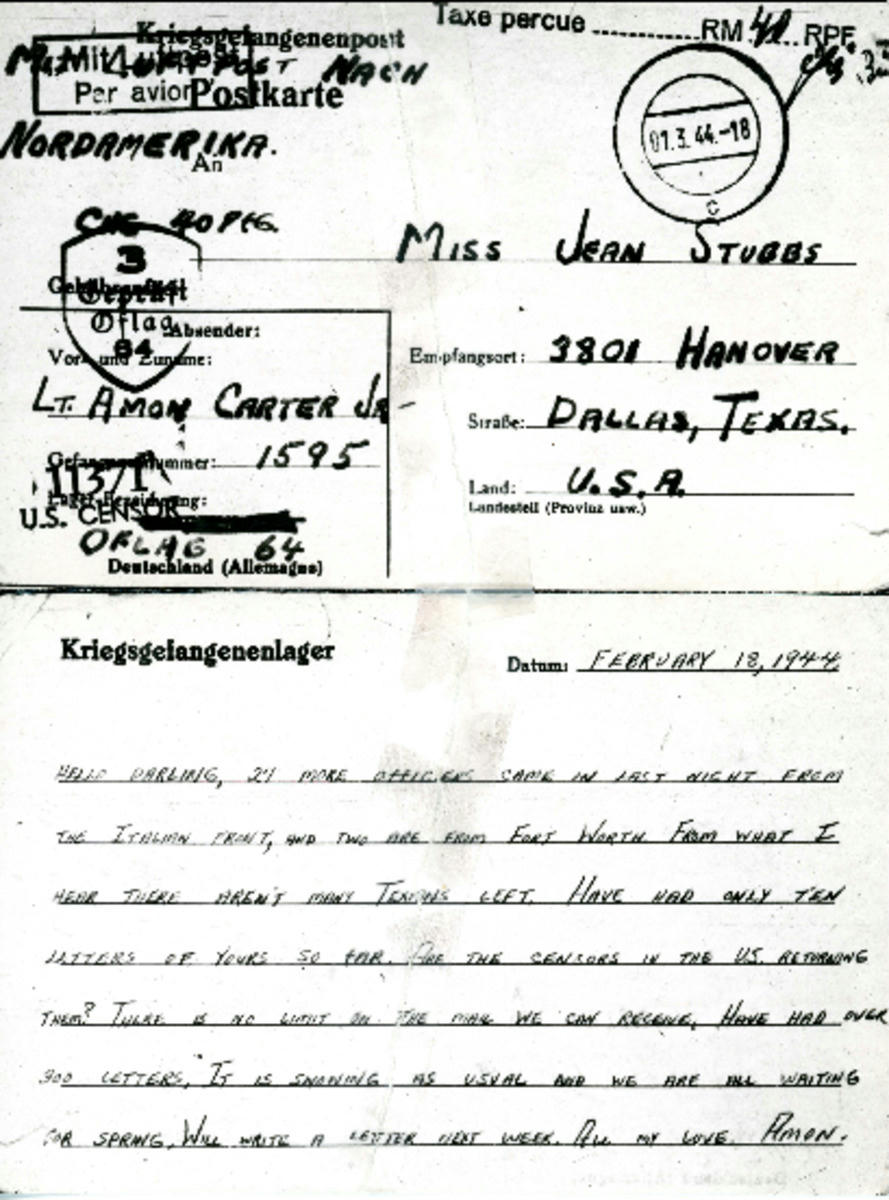 Taxe percue RM 40 RPF
Kriegsgefangenenpost
Mit Luftpost
Par avion
Mit Luftpost nach
Postkarte
Nordamerika.
An
01.3.44.-18
c
40 Pfg.
Miss Jean Stubbs
3
Geprüft
Oflag
64
Gebührenfrei!
Absender:
Vor- und Zuname:
Empfangsort: 3801 Hanover
Lt. Amon Carter Jr
Straße: Dallas, Texas.
Gefangenennummer: 1595
Land: U.S.A.
Landesteil (Provinz usw.)
11371
U.S. CENSOR
Lager-Bezeichnung:
Oflag 64
Deutschland (Allemagne)
Kriegsgefangenenlager
Datum: February 18, 1944
Hello darling, 27 more officers came in last night from
the Italian front, and two are from Fort Worth. From what I
hear there aren't many Texans left. Have had only ten
letters of yours so far. Are the censors in the U.S. returning
them? There is no limit on the mail we can receive. Have had over
300 letters. It is snowing as usual and we are all waiting
for spring. Will write a letter next week. All my love. Amon.